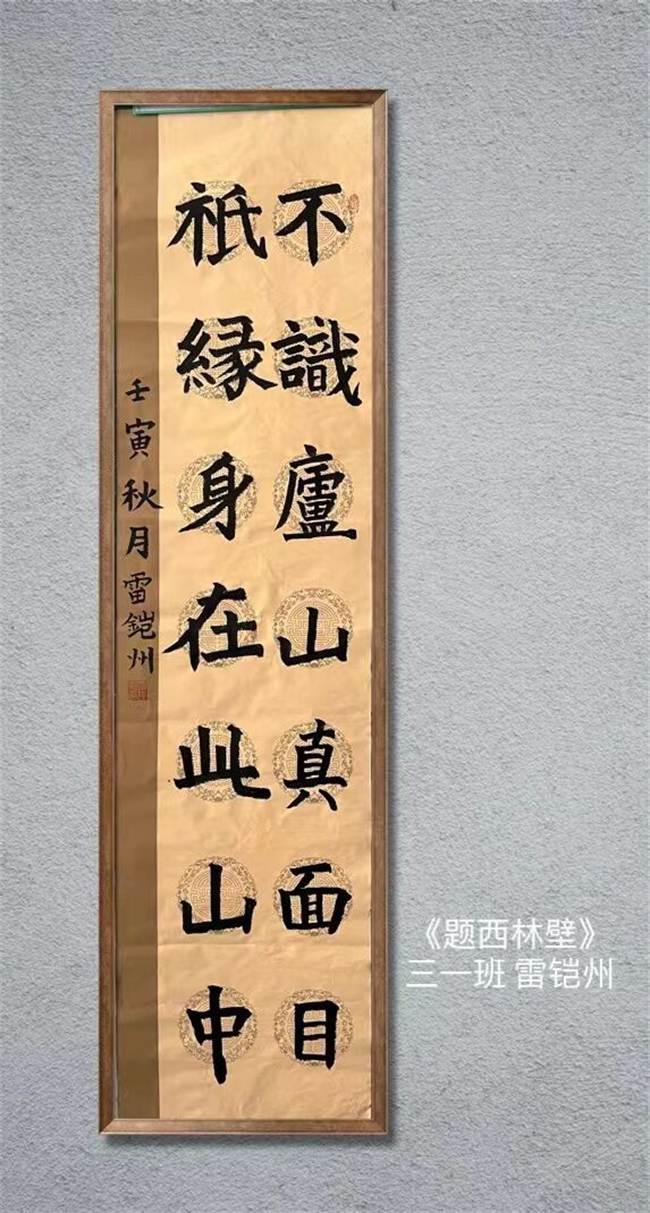 不識廬山真面目
祇緣身在此山中
壬寅秋月雷鎧州
《题西林壁》
三一班 雷铠州